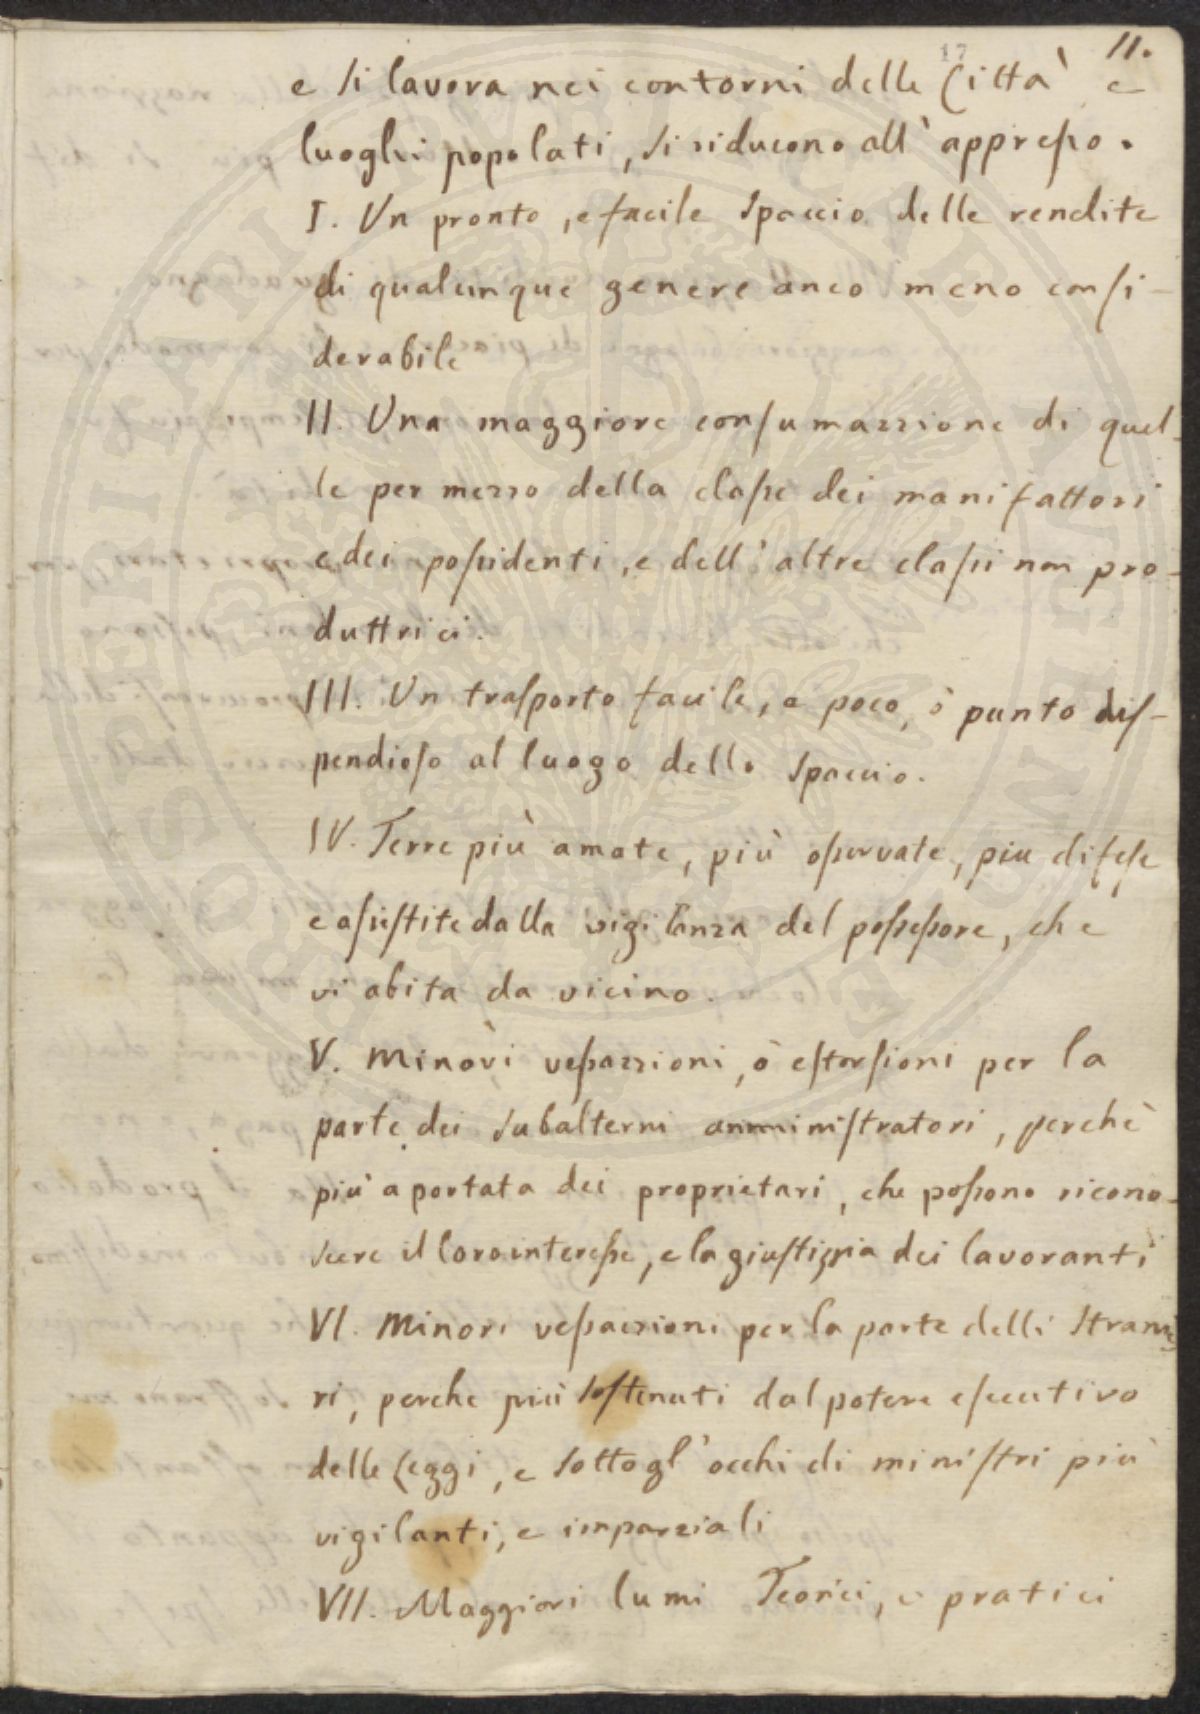 17
11.
e si lavora nei contorni delle Città e
luoghi popolati, si riducono all'appresso.
I. Un pronto, e facile spaccio delle rendite
di qualunque genere anco meno consi-
derabile
II. Una maggiore consumazzione di quel-
le per mezzo della classe dei manifattori
e dei possidenti, e dell'altre classi non pro-
duttrici.
III. Un trasporto facile, e poco, ò punto dis-
pendioso al luogo dello spaccio.
IV. Terre più amate, più osservate, piu difese
e assistite dalla vigilanza del possessore, che
vi abita da vicino.
V. Minori vessazzioni, ò estorsioni per la
parte dei subalterni amministratori, perchè
più a portata dei proprietari, che possono ricono-
scere il loro interesse, e la giustizzia dei lavoranti
VI. Minori vessazzioni per la parte delli stranie
ri, perche più sostenuti dal potere esecutivo
delle Leggi, e sotto gl'occhi di ministri più
vigilanti, e imparziali
VII. Maggiori lumi Teorici, e pratici